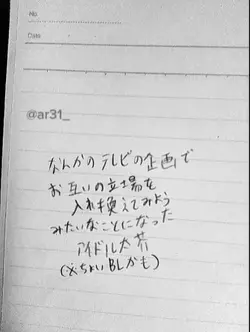 No.
Date
@ar31_
なんかのテレビの企画で
お互いの立場を
入れ換えてみよう
みたいなことになった
アイドル太芥
(※ちょいBLかも)